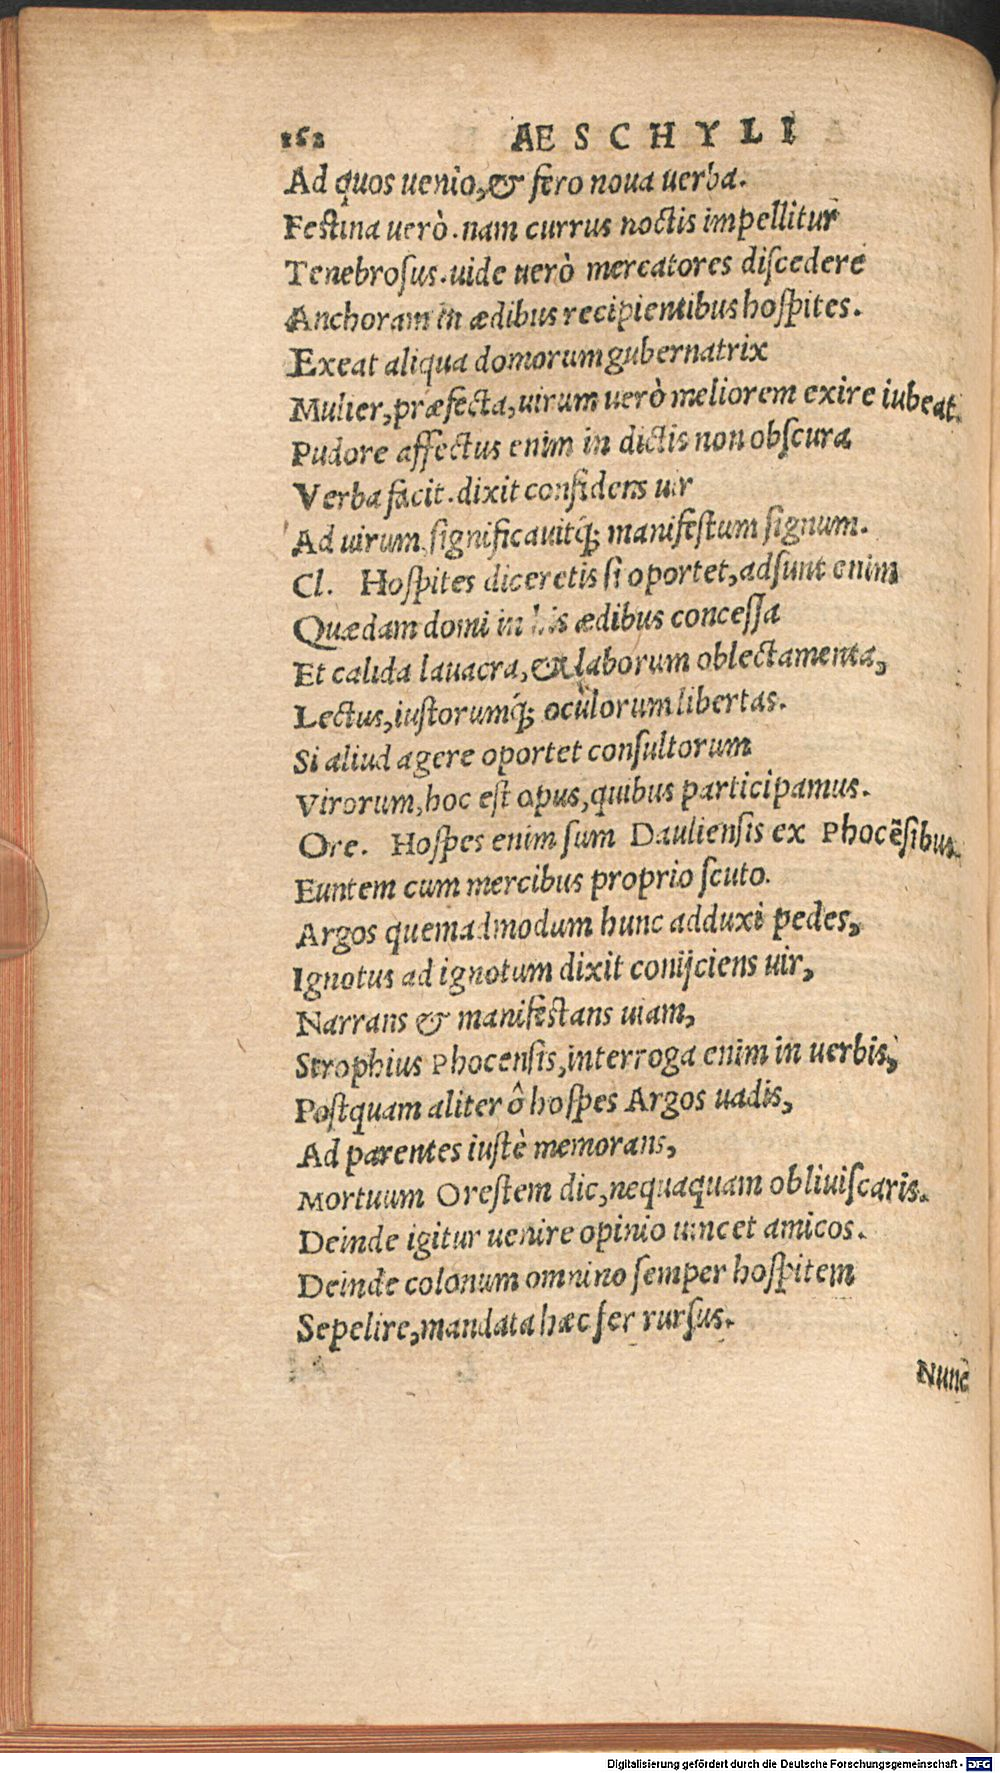 162 AESCHYLI
Ad quos uenio, & fero noua uerba.
Festina uerò. nam currus noctis impellitur
Tenebrosus. uide uerò mercatores discedere
Anchoram in ædibus recipientibus hospites.
Exeat aliqua domorum gubernatrix
Mulier, præfecta, uirum uerò meliorem exire iubeat.
Pudore affectus enim in dictis non obscura
Verba facit. dixit confidens uir
Ad uirum, significauitq́; manifestum signum.
Cl. Hospites diceretis si oportet, adsunt enim
Quædam domi in his ædibus concessa
Et calida lauacra, & laborum oblectamenta,
Lectus, iustorumq́; oculorum libertas.
Si aliud agere oportet consultorum
Virorum, hoc est opus, quibus participamus.
Ore. Hospes enim sum Dauliensis ex Phocẽsibus.
Euntem cum mercibus proprio scuto.
Argos quemadmodum hunc adduxi pedes,
Ignotus ad ignotum dixit conijciens uir,
Narrans & manifestans uiam,
Strophius Phocensis, interroga enim in uerbis,
Postquam aliter ô hospes Argos uadis,
Ad parentes iustè memorans,
Mortuum Orestem dic, nequaquam obliuiscaris.
Deinde igitur uenire opinio uincet amicos.
Deinde colonum omnino semper hospitem
Sepelire, mandata hæc fer rursus.
Nunc
Digitalisierung gefördert durch die Deutsche Forschungsgemeinschaft - DFG